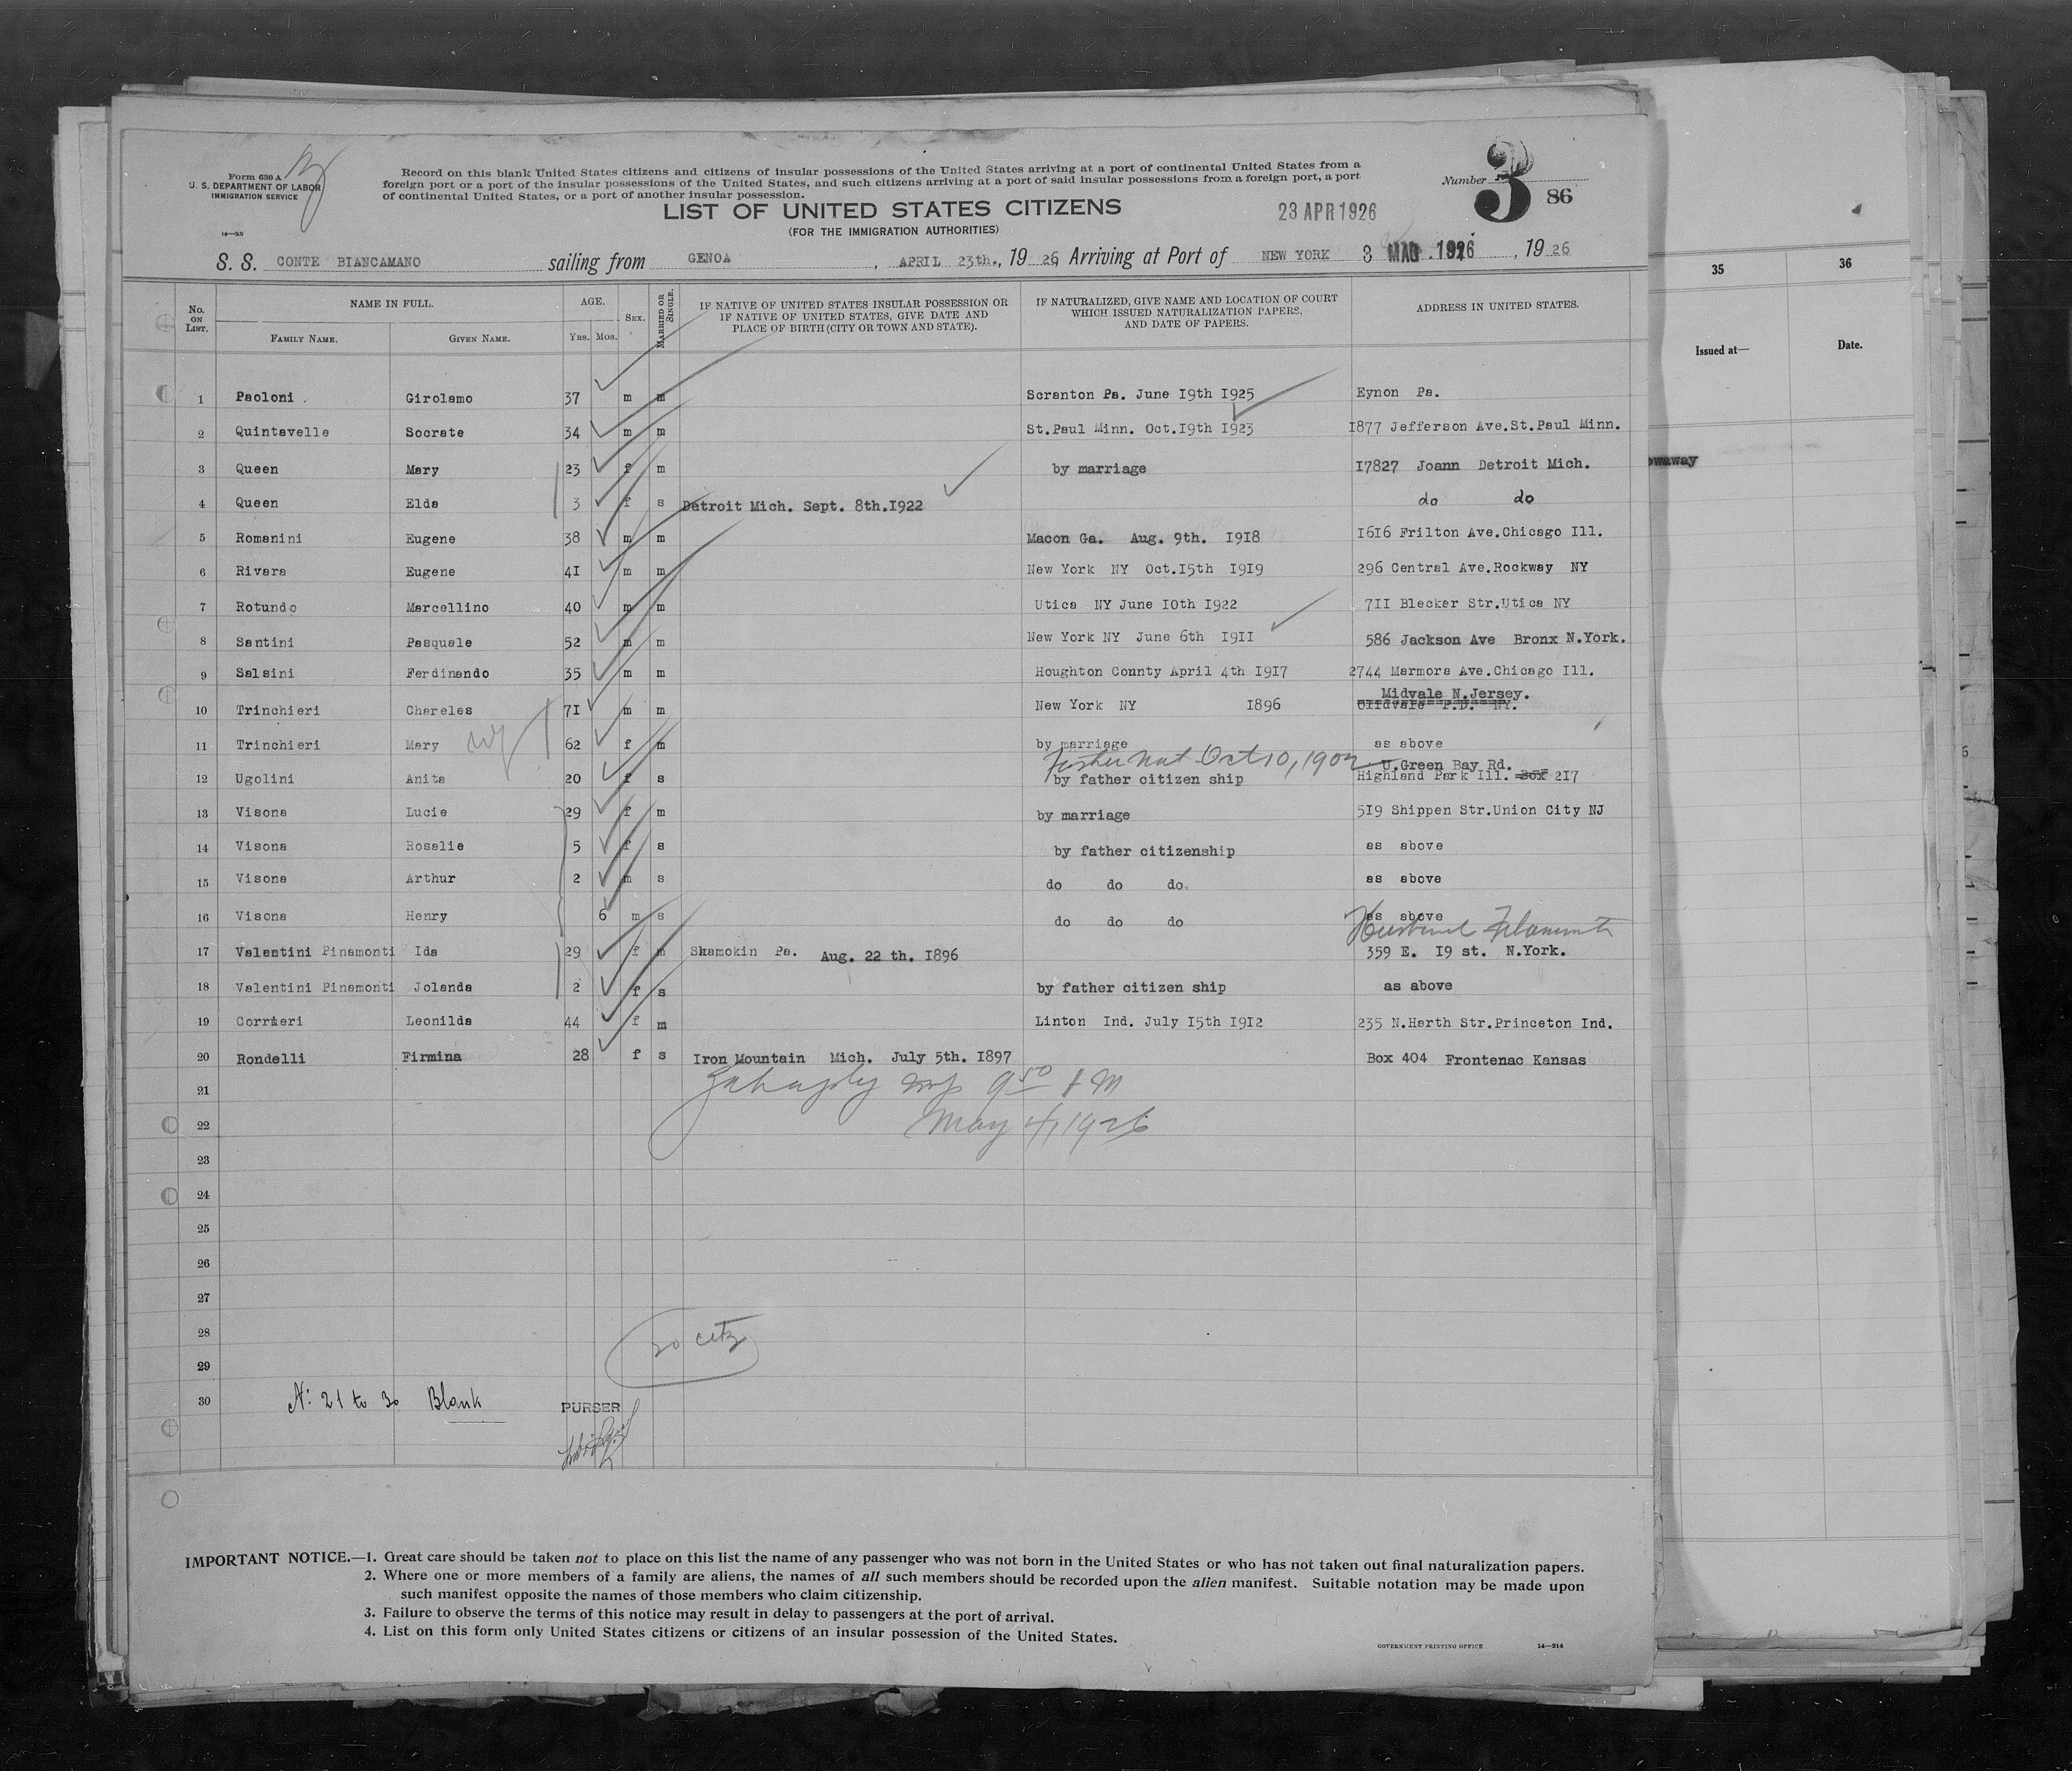 Form 630 A
U. S. DEPARTMENT OF LABOR
IMMIGRATION SERVICE
Record on this blank United States citizens and citizens of insular possessions of the United States arriving at a port of continental United States from a
foreign port or a port of the insular possessions of the United States, and such citizens arriving at a port of said insular possessions from a foreign port, a port
of continental United States, or a port of another insular possession.
Number 3 86
LIST OF UNITED STATES CITIZENS
(FOR THE IMMIGRATION AUTHORITIES)
23 APR 1926
S. S. CONTE BIANCAMANO sailing from GENOA, APRIL 23th., 19 26, Arriving at Port of NEW YORK 3 MAG. 1926, 19 26
No. ON LIST. NAME IN FULL. AGE. SEX. MARRIED OR SINGLE. IF NATIVE OF UNITED STATES INSULAR POSSESSION OR IF NATIVE OF UNITED STATES, GIVE DATE AND PLACE OF BIRTH (CITY OR TOWN AND STATE). IF NATURALIZED, GIVE NAME AND LOCATION OF COURT WHICH ISSUED NATURALIZATION PAPERS, AND DATE OF PAPERS. ADDRESS IN UNITED STATES.
FAMILY NAME. GIVEN NAME. YRS. MOS.
1 Paoloni Girolamo 37 m m Scranton Pa. June I9th I925 Eynon Pa.
2 Quintavelle Socrate 34 m m St.Paul Minn. Oct.I9th I923 I877 Jefferson Ave.St.Paul Minn.
3 Queen Mary 23 f m by marriage I7827 Joann Detroit Mich.
4 Queen Elda 3 f s Detroit Mich. Sept. 8th.I922 do do
5 Romanini Eugene 38 m m Macon Ga. Aug. 9th. I9I8 I6I6 Frilton Ave.Chicago Ill.
6 Rivara Eugene 4I m m New York NY Oct.I5th I9I9 296 Central Ave.Rockway NY
7 Rotundo Marcellino 40 m m Utica NY June I0th I922 7II Blecker Str.Utica NY
8 Santini Pasquale 52 m m New York NY June 6th I9II 586 Jackson Ave Bronx N.York.
9 Salsini Ferdinando 35 m m Houghton Connty April 4th I9I7 2744 Marmora Ave.Chicago Ill.
Midvale N.Jersey.
10 Trinchieri Chareles 7I m m New York NY I896
11 Trinchieri Mary 62 f m by marriage as above
Father nat Oct 10, 1902 U.Green Bay Rd.
12 Ugolini Anita 20 f s by father citizen ship Highland Park Ill. Box 2I7
13 Visona Lucie 29 f m by marriage 5I9 Shippen Str.Union City NJ
14 Visona Rosalie 5 f s by father citizenship as above
15 Visona Arthur 2 m s do do do. as above
16 Visona Henry 6 m s do do do as above
Husband
17 Valentini Pinamonti Ida 29 f m Shamokin Pa. Aug. 22 th. I896 359 E. I9 st. N.York.
18 Valentini Pinamonti Jolanda 2 f s by father citizen ship as above
19 Corrieri Leonilda 44 f m Linton Ind. July I5th I9I2 235 N.Harth Str.Princeton Ind.
20 Rondelli Firmina 28 f s Iron Mountain Mich. July 5th. I897 Box 404 Frontenac Kansas
21
22 May 4, 1926
23
24
25
26
27
28
20 citz
29
30 N: 21 to 30 Blank
PURSER
IMPORTANT NOTICE.—1. Great care should be taken not to place on this list the name of any passenger who was not born in the United States or who has not taken out final naturalization papers.
2. Where one or more members of a family are aliens, the names of all such members should be recorded upon the alien manifest. Suitable notation may be made upon
such manifest opposite the names of those members who claim citizenship.
3. Failure to observe the terms of this notice may result in delay to passengers at the port of arrival.
4. List on this form only United States citizens or citizens of an insular possession of the United States.
GOVERNMENT PRINTING OFFICE 14—214
35 36
Issued at— Date.